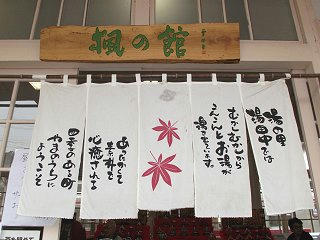 楓の館
湯の里
湯田中では
むかしむかしから
こんこんとお湯が
湧きています。
あったかくて
素朴で
心癒される
四季のある町
やまのうちに
ようこそ